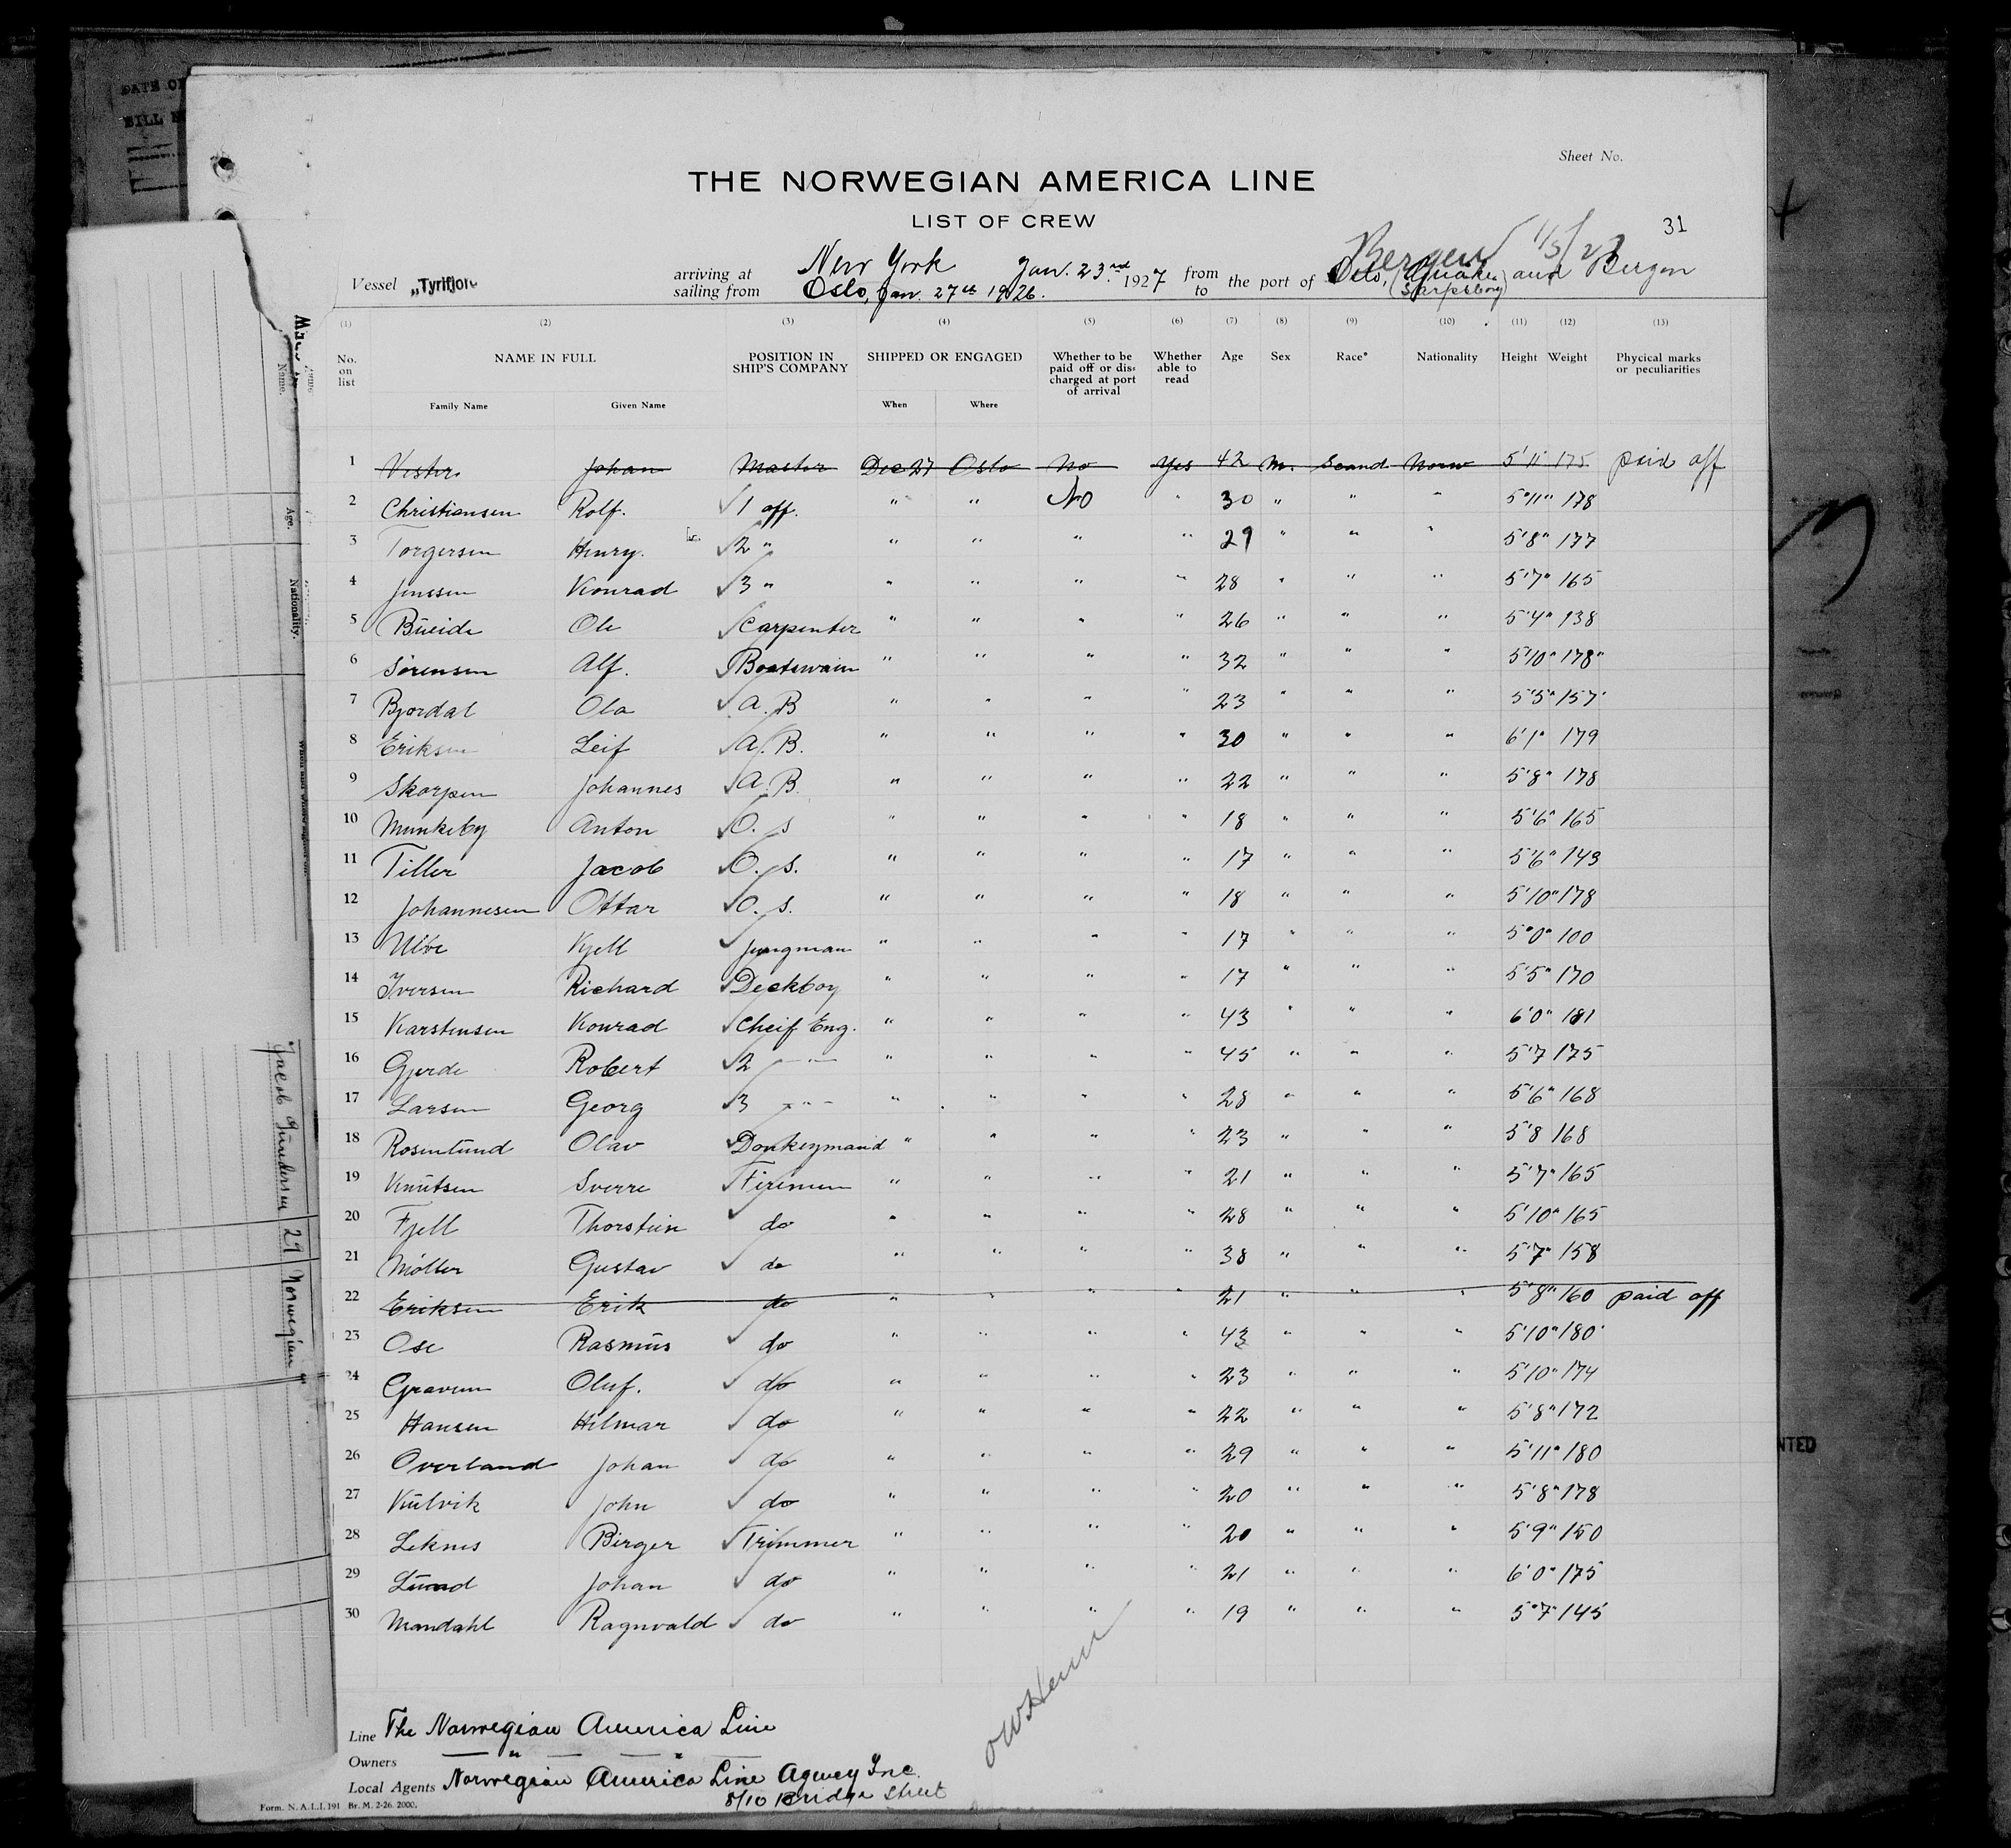 DATE OF
BILL
Sheet No.
THE NORWEGIAN AMERICA LINE
LIST OF CREW
31
Vessel „Tyrifjord arriving at New York Jan. 23rd 1927 from the port of Oslo, and Bergen
sailing from Oslo, Jan. 27th 1926. to (Sarpsborg)
Bergen
(1) (2) (3) (4) (5) (6) (7) (8) (9) (10) (11) (12) (13)
No. on list NAME IN FULL POSITION IN SHIP'S COMPANY SHIPPED OR ENGAGED Whether to be paid off or dis-charged at port of arrival Whether able to read Age Sex Race* Nationality Height Weight Phycical marks or peculiarities
Family Name Given Name When Where
1 Vester Johan Master Dec 27 Oslo No Yes 42 M. Scand Norw 5'11 175 paid off
2 Christiansen Rolf. 1 off. " " No " 30 " " " 5'11" 178
3 Torgersen Henry. 2 " " " " " 29 " " " 5'8" 177
4 Jenssen Konrad 3 " " " " " 28 " " " 5'7" 165
5 Bueide Ole Carpenter " " " " 26 " " " 5'4" 138
6 Sörensen Alf. Boatswain " " " " 32 " " " 5'10" 178"
7 Bjordal Ola A. B " " " " 23 " " " 5'5" 157
8 Eriksen Leif A. B. " " " " 30 " " " 6'1" 179
9 Skorpen Johannes A. B. " " " " 22 " " " 5'8" 178
10 Munkeby Anton O. S " " " " 18 " " " 5'6" 165
11 Tiller Jacob O. S. " " " " 17 " " " 5'6" 143
12 Johannesen Ottar O. S. " " " " 18 " " " 5'10" 178
13 Kjell Jungman " " " " 17 " " " 5'0" 100
14 Iversen Richard Deckboy " " " " 17 " " " 5'5" 170
15 Karstensen Konrad Cheif Eng. " " " " 43 " " " 6'0" 181
16 Gjerde Robert 2 — " — " " " " 45 " " " 5'7 175
17 Larsen Georg 3 — " — " " " " 28 " " " 5'6" 168
18 Rosenlund Olav Donkeymand " " " " 23 " " " 5'8 168
19 Knutsen Sverre Firemen " " " " 21 " " " 5'7" 165
20 Fjell Thorstein do " " " " 28 " " " 5'10" 165
21 Möller Gustav do " " " " 38 " " " 5'7" 158
22 Eriksen Erik do " " " " 21 " " " 5'8" 160 paid off
23 Ose Rasmus do " " " " 43 " " " 5'10" 180
24 Graven Oluf. do " " " " 23 " " " 5'10" 174
25 Hansen Hilmar do " " " " 22 " " " 5'8" 172
26 Overland Johan do " " " " 29 " " " 5'11" 180
27 Kulvik John do " " " " 20 " " " 5'8" 178
28 Leknes Birger Trimmer " " " " 20 " " " 5'9" 150
29 Lund Johan do " " " " 21 " " " 6'0" 175
30 Mandahl Ragnvald do " " " " 19 " " " 5'7" 145
Line The Norwegian America Line
Owners — " — — " —
Local Agents Norwegian America Line Agency Inc.
8/10 Bridge Street
Form. N. A. L. I. 191 Br. M. 2-26. 2000.
Name.
Age.
Nationality.
Jacob Gundersen 29 Norwegian
NTED